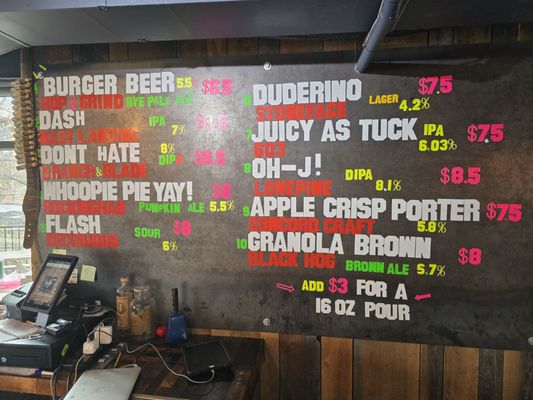 BURGER BEER 5.5 $6.5
HOP & GRIND RYE PALE ALE
DASH IPA
7%
DONT HATE 8% $8.5
BRANCH & BLADE DIPA
WHOOPIE PIE YAY! $8
ROCKINGHAM PUMPKIN ALE 5.5%
FLASH $8
DECIDUOUS SOUR 6%
DUDERINO $7.5
STONEFACE LAGER 4.2%
7 JUICY AS TUCK IPA $7.5
603 6.03%
8 OH-J! DIPA $8.5
LONEPINE 8.1%
9 APPLE CRISP PORTER $7.5
CONCORD CRAFT 5.8%
10 GRANOLA BROWN $8
BLACK HOG BROWN ALE 5.7%
ADD $3 FOR A
16 OZ POUR